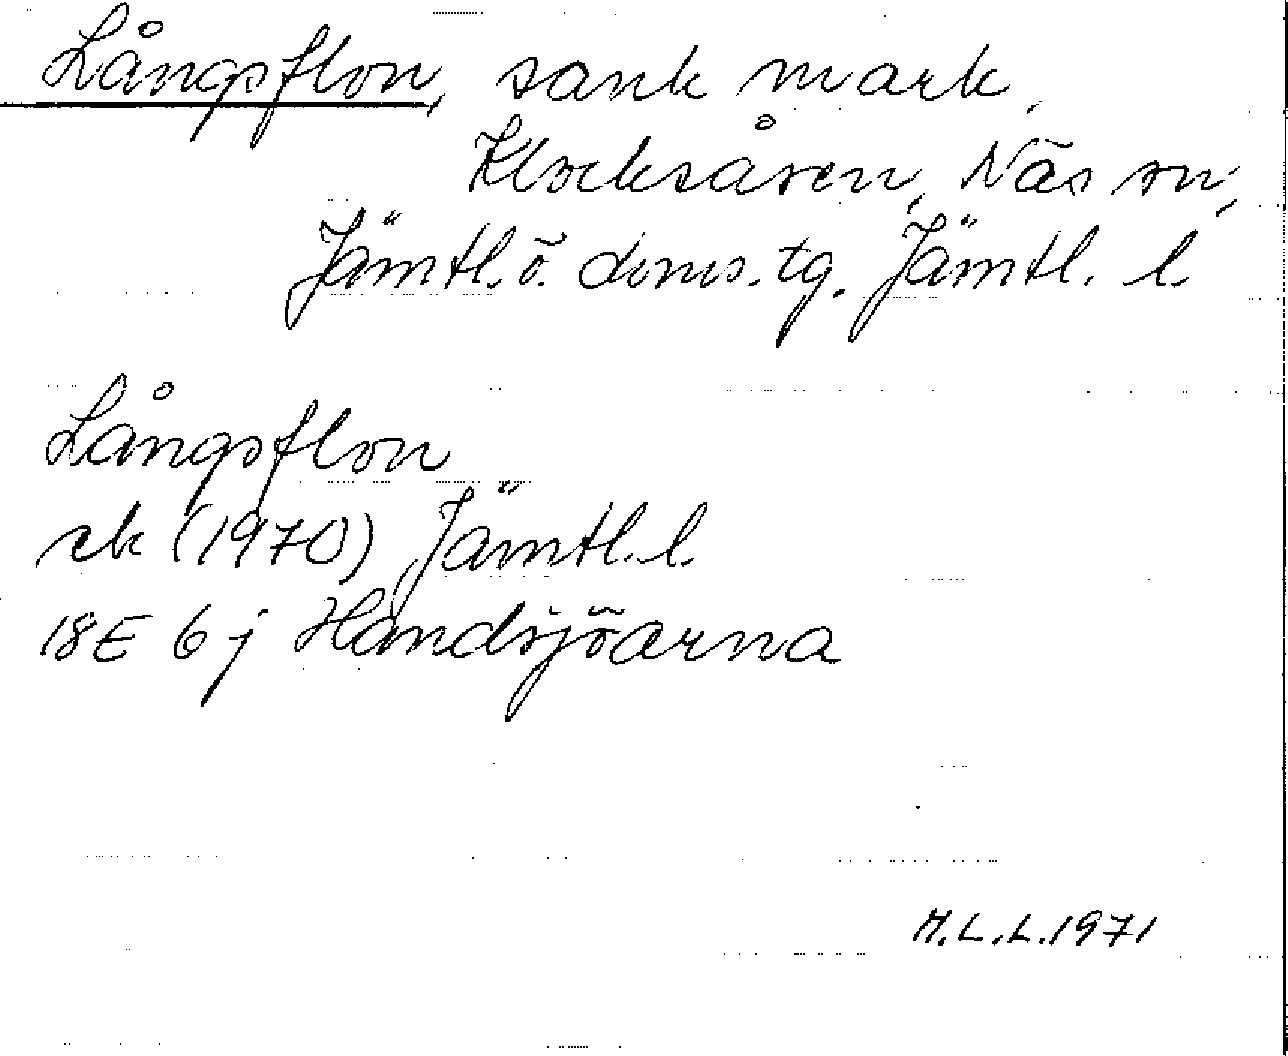 Långsflon, sank mark,
Klocksåsen, Näs sn,
Jämtl. ö. doms. tg. Jämtl. l.
Långsflon
ek (1970) Jämtl. l.
18E 6j Handsjöarna
M.L.L. 1971